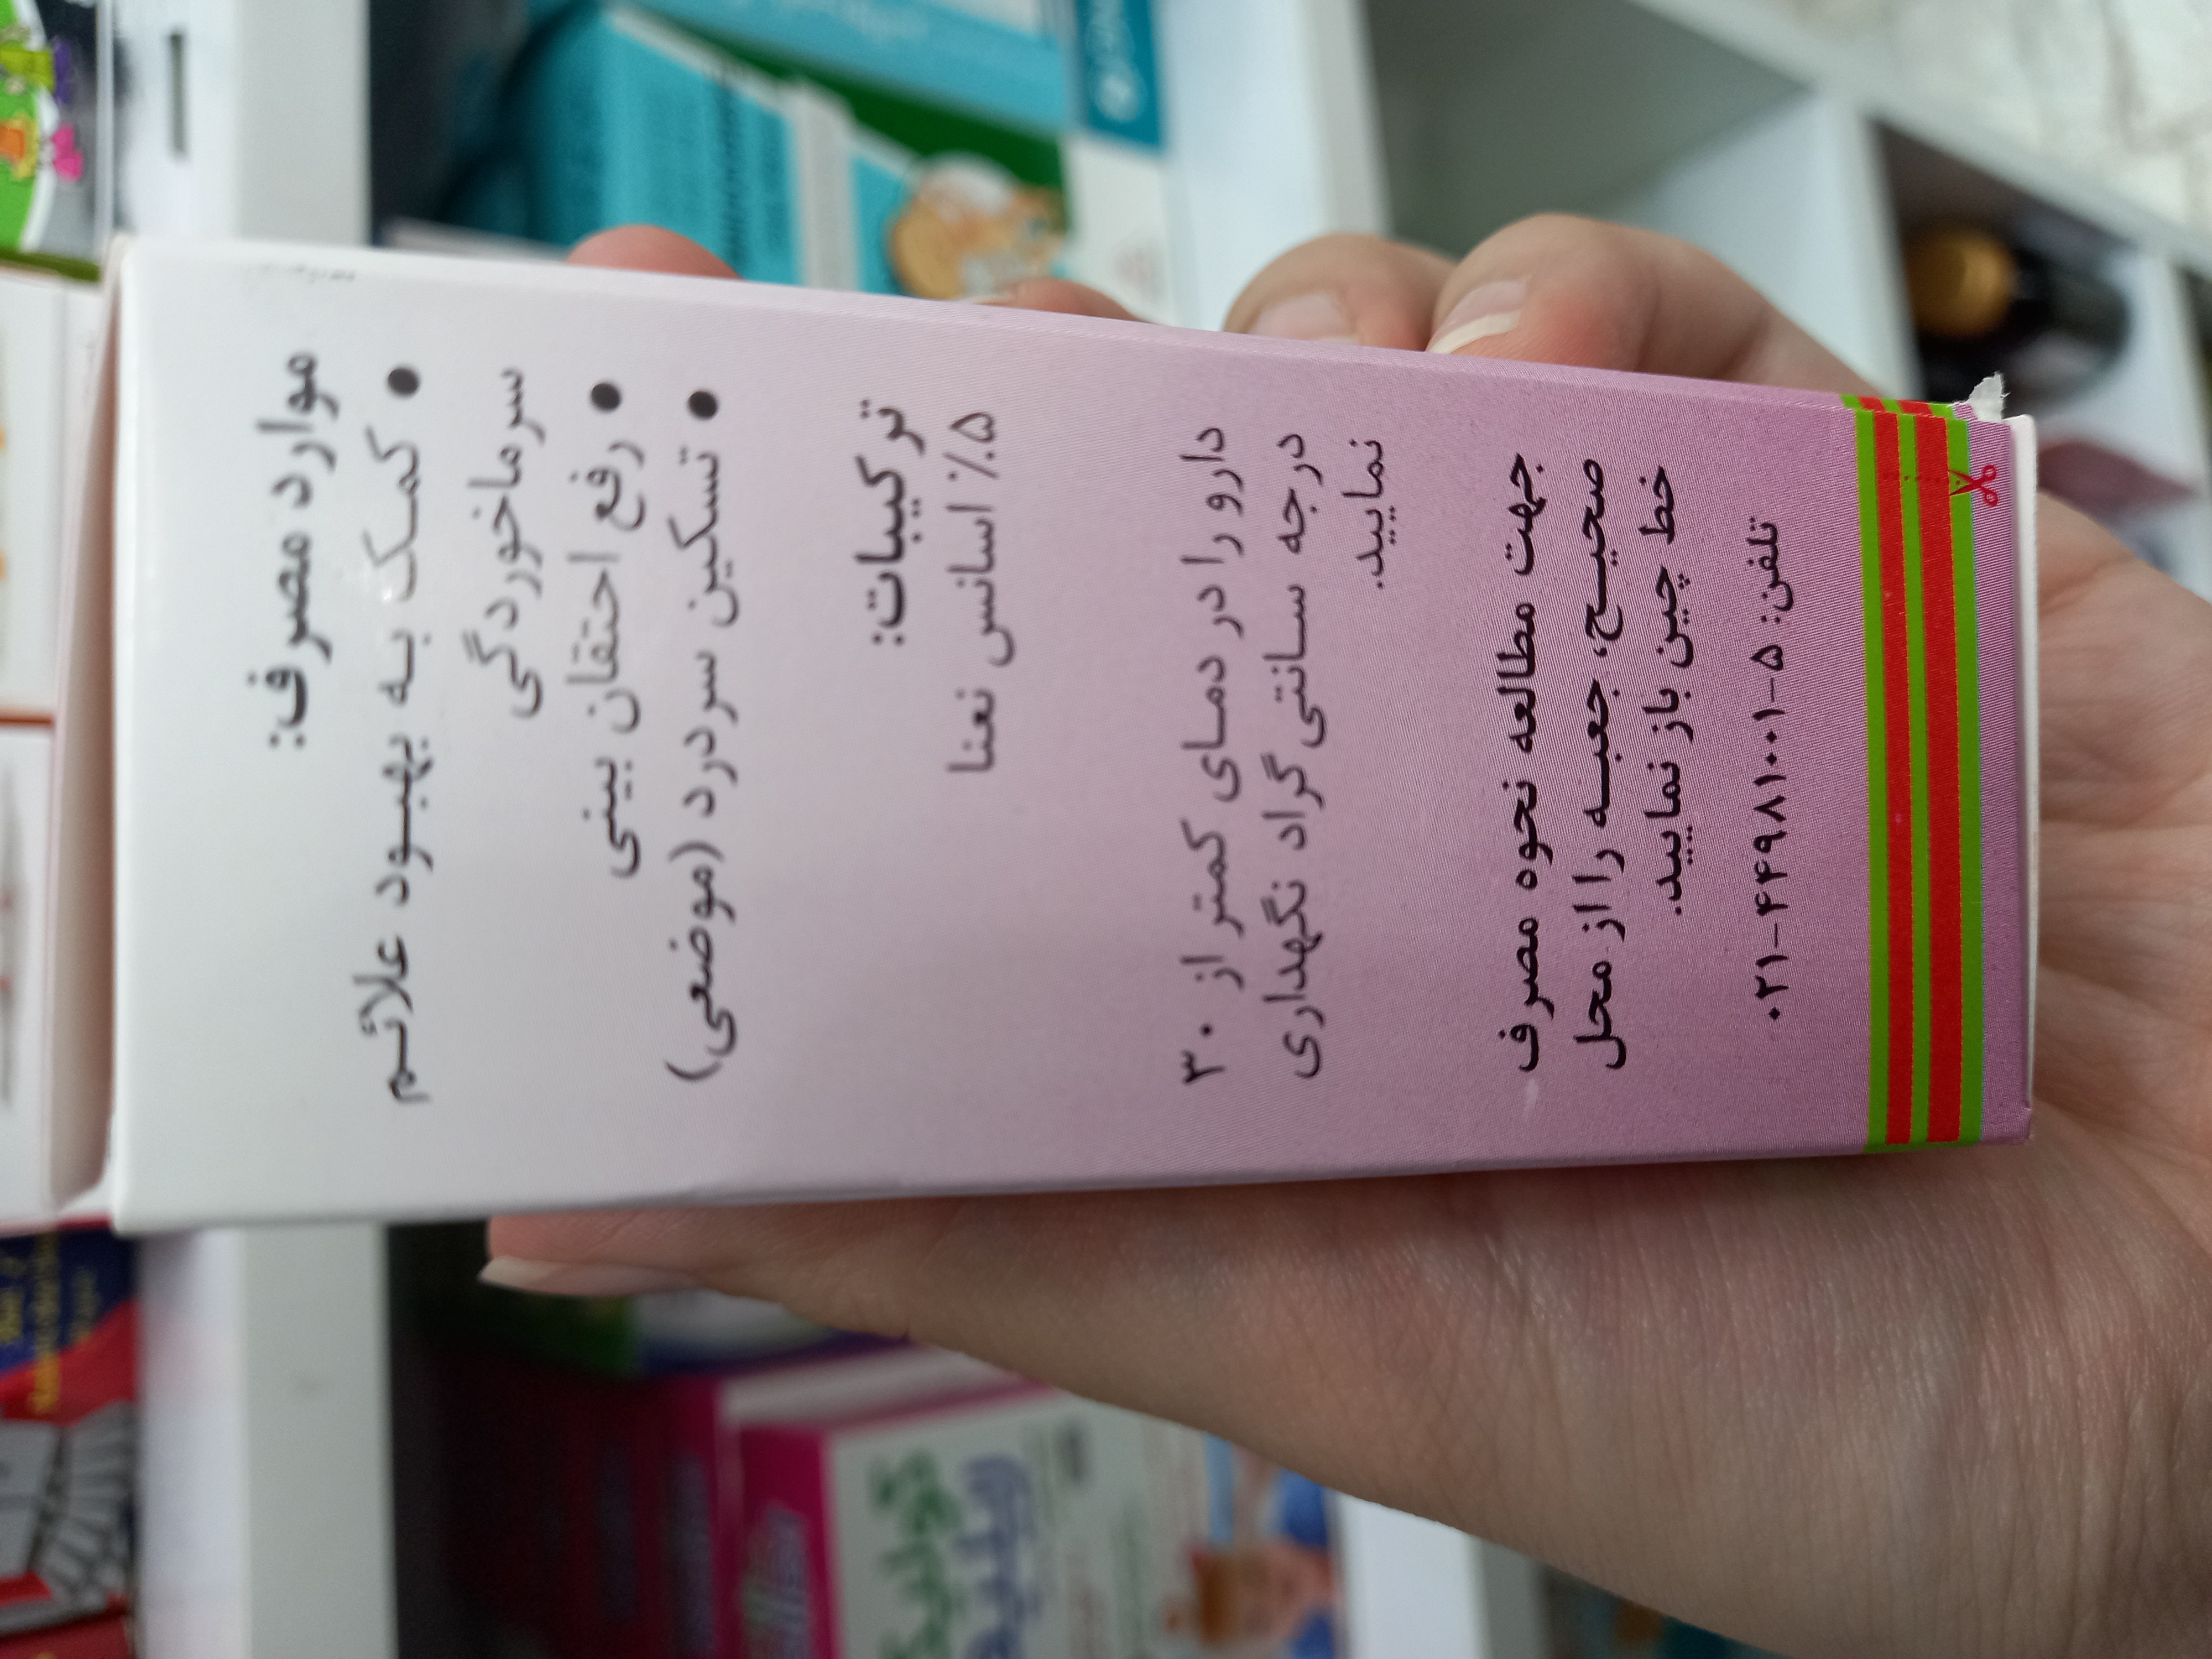 موارد مصرف:
● کمک به بهبود علائم
سرماخوردگی
● رفع احتقان بینی
● تسکین سردرد (موضعی)
ترکیبات:
۵٪ اسانس نعنا
دارو را در دمای کمتر از ۳۰
درجه سانتی گراد نگهداری
نمایید.
جهت مطالعه نحوه مصرف
صحیح، جعبه را از محل
خط چین باز نمایید.
تلفن: ۵-۰۲۱-۴۴۹۸۱۰۰۱